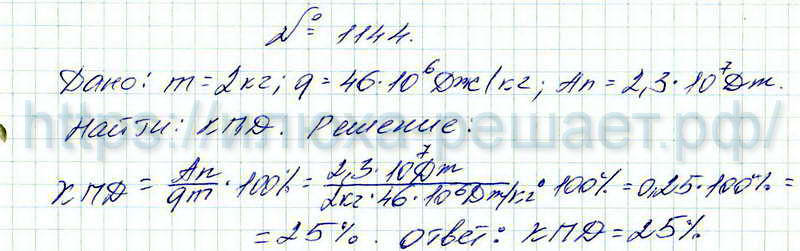 № 1144.
Дано: m = 2кг; q = 46·10⁶ Дж/кг; Ап = 2,3·10⁷ Дж.
Найти: КПД. Решение:
КПД = Ап/qm · 100% = 2,3·10⁷Дж/2кг·46·10⁶Дж/кг · 100% = 0,25·100% =
= 25%. Ответ: КПД = 25%